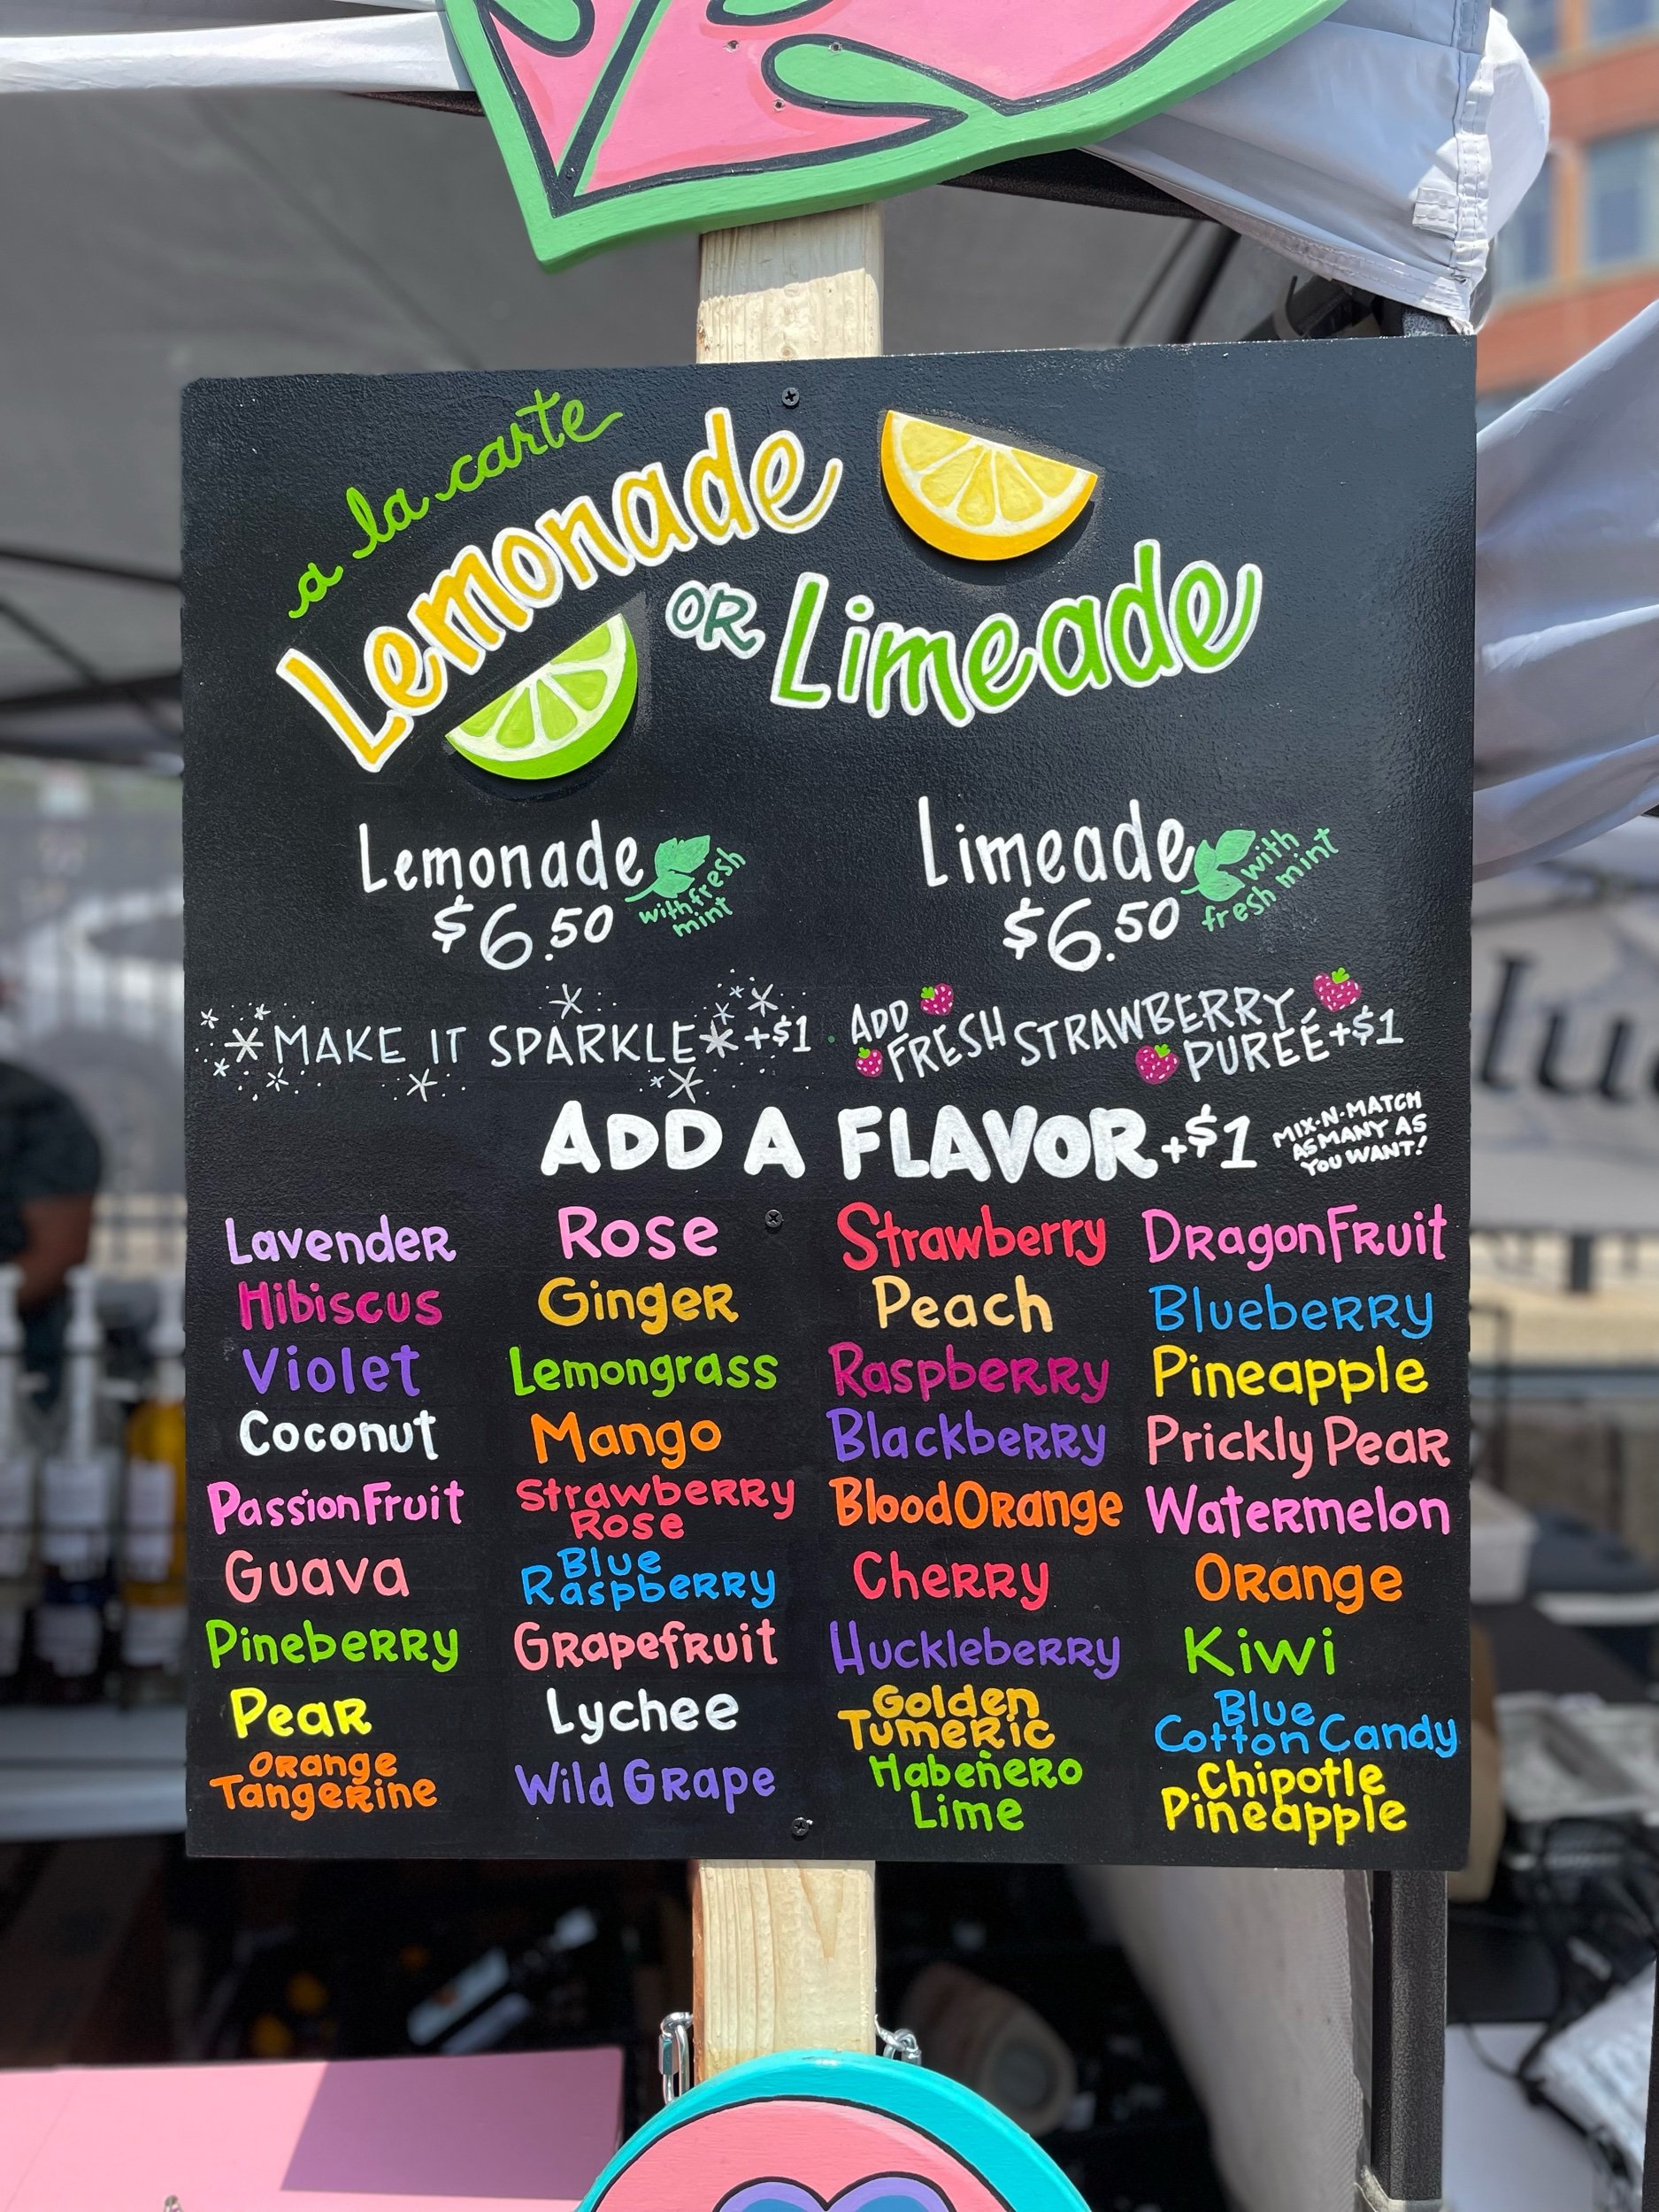 a la carte
Lemonade
OR Limeade
Lemonade
with fresh
mint
$6.50
Limeade
with
fresh mint
$6.50
MAKE IT SPARKLE +$1
ADD
FRESH STRAWBERRY
PUREÉ +$1
ADD A FLAVOR +$1
MIX-N-MATCH
AS MANY AS
YOU WANT!
Lavender
Hibiscus
Violet
Coconut
Passion Fruit
Guava
Pineberry
Pear
Orange
Tangerine
Rose
Ginger
Lemongrass
Mango
Strawberry
Rose
Blue
Raspberry
Grapefruit
Lychee
Wild Grape
Strawberry
Peach
Raspberry
Blackberry
Blood Orange
Cherry
Huckleberry
Golden
Tumeric
Habeñero
Lime
Dragon Fruit
Blueberry
Pineapple
Prickly Pear
Watermelon
Orange
Kiwi
Blue
Cotton Candy
Chipotle
Pineapple